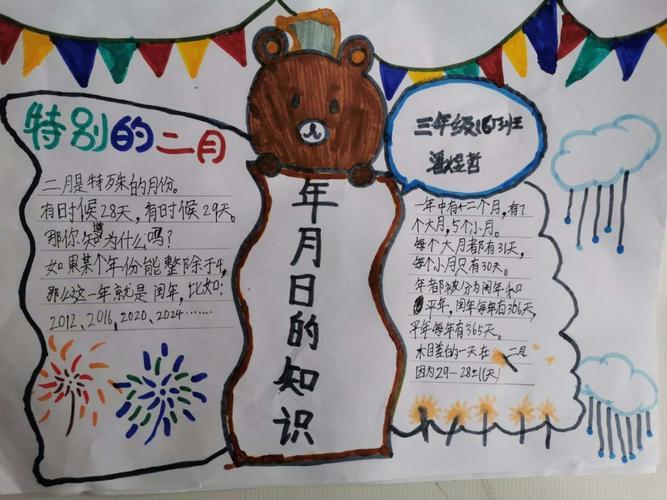 特别的二月
二月是特殊的月份。
有时候28天，有时候29天。
那你知道为什么吗？
如果某个年份能整除于4,
那么这一年就是闰年，比如：
2012、2016、2020、2024……
年月日的知识
三年级16班
一年中有十二个月，有7
个大月，5个小月。
每个大月都有31天，
每个小月只有30天。
年都被分为闰年和
平年，闰年每年有366天，
平年每年有365天。
木目差的一天在二月
因为29-28=1(天)